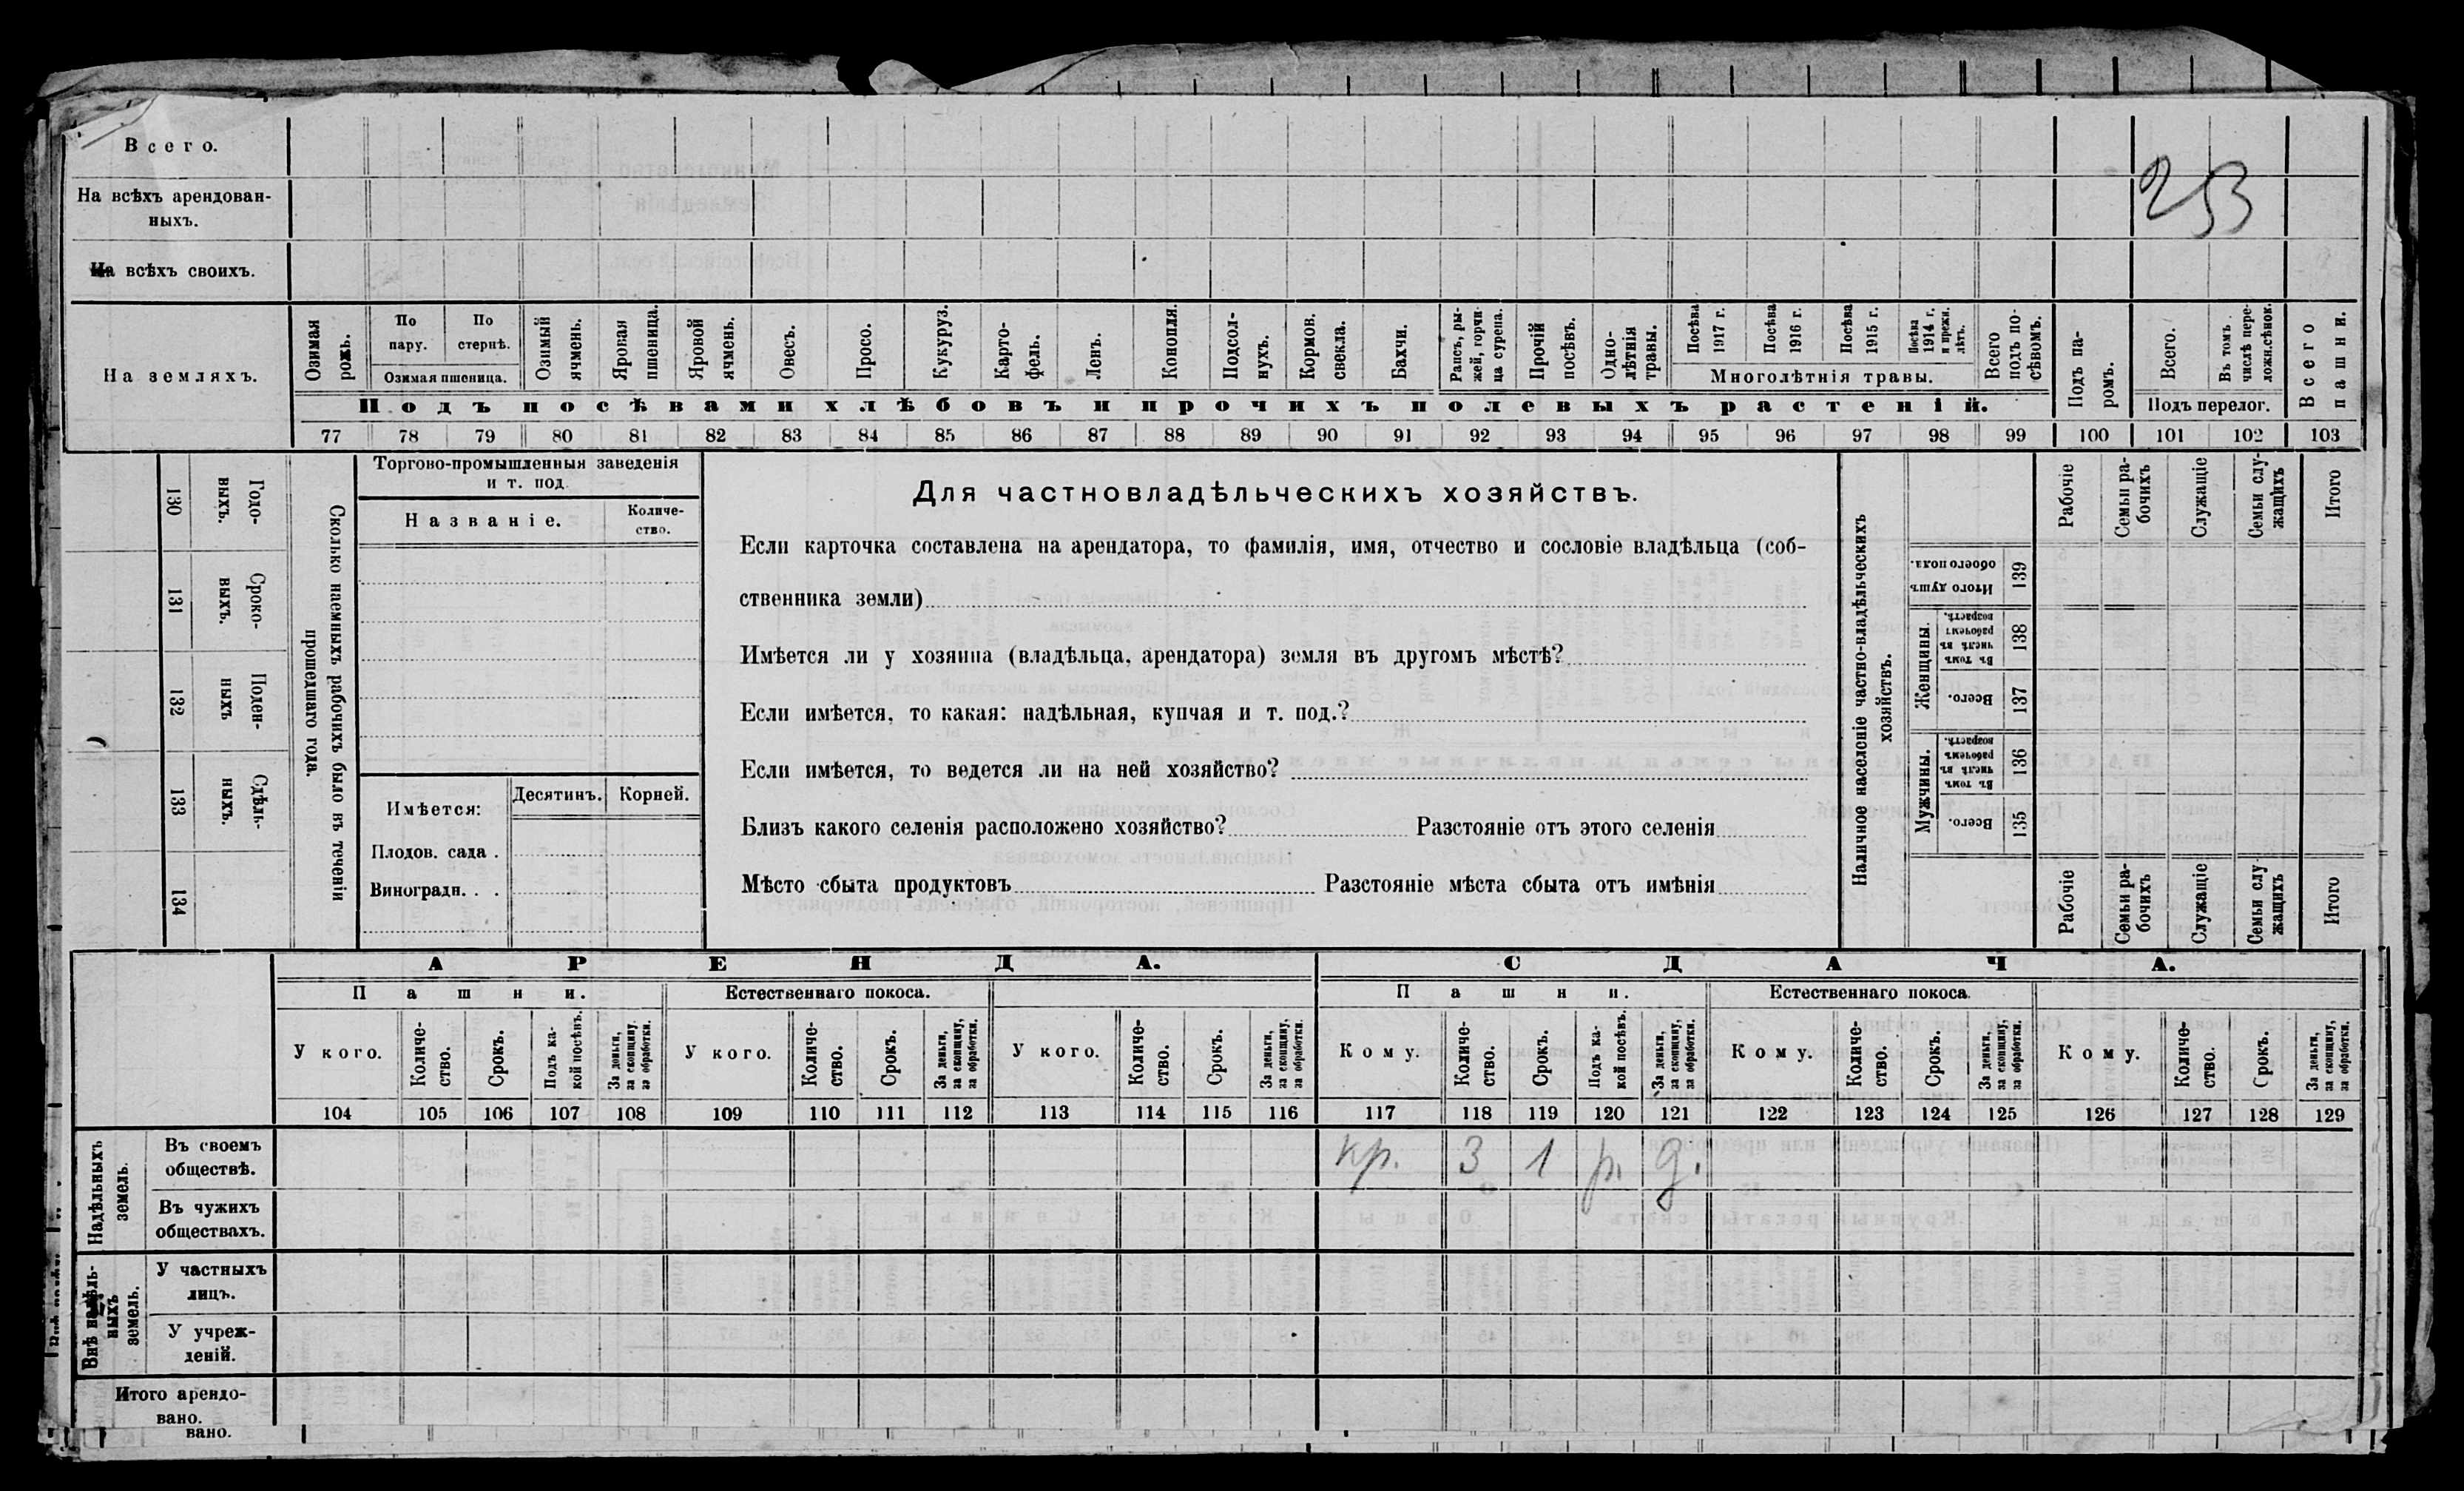 253
Всего.
На всѣхъ арендован-
ныхъ.
На всѣхъ своихъ.
На земляхъ.
Озимая рожь.
По пару.
По стернѣ.
Озимая пшеница.
Озимый ячмень.
Яровая пшеница.
Яровой ячмень.
Овесъ.
Просо.
Кукуруз.
Карто-
фель.
Ленъ.
Конопля.
Подсол-
нухъ.
Кормов. свекла.
Бахчи.
Рапсъ, ры-
жей, горчи-
ца сурепа.
Прочій посѣвъ.
Одно-
лѣтнія травы.
Посѣва 1917 г.
Посѣва 1916 г.
Посѣва 1915 г.
Посѣва 1914 г. и прежн. лѣтъ.
Многолѣтнія травы.
Всего подъ по-
сѣвомъ.
Подъ посѣвами хлѣбовъ и прочихъ полевыхъ растеній.
Подъ па-
ромъ.
Всего.
Въ томъ числѣ пере-
ложн.сѣнок.
Подъ перелог.
Всего пашни.
77 78 79 80 81 82 83 84 85 86 87 88 89 90 91 92 93 94 95 96 97 98 99 100 101 102 103
Сколько наемныхъ рабочихъ было въ теченіи
прошедшаго года.
Годо-
выхъ.
130
Сроко-
ныхъ.
131
Поден-
ныхъ
132
Сдѣль-
ныхъ.
133
134
Торгово-промышленныя заведенія
и т. под.
Названіе.
Количе-
ство.
Имѣется:
Десятинъ.
Корней.
Плодов. сада .
Виноградн. . .
Для частновладѣльческихъ хозяйствъ.
Если карточка составлена на арендатора, то фамилія, имя, отчество и сословіе владѣльца (соб-
ственника земли)
Имѣется ли у хозяина (владѣльца, арендатора) земля въ другомъ мѣстѣ?
Если имѣется, то какая: надѣльная, купчая и т. под.?
Если имѣется, то ведется ли на ней хозяйство?
Близъ какого селенія расположено хозяйство? Разстояніе отъ этого селенія
Мѣсто сбыта продуктовъ Разстояніе мѣста сбыта отъ имѣнія
Наличное населеніе частно-владѣльческихъ
хозяйствъ.
Рабочіе
Семьи ра-
бочихъ
Служащіе
Семьи слу-
жащихъ
Итого
Итого душъ обоего пола.
139
Женщины.
Въ томъ числѣ въ рабочемъ возрастѣ.
138
Всего.
137
Мужчины.
Въ томъ числѣ въ рабочемъ возрастѣ.
136
Всего.
135
Рабочіе
Семьи ра-
бочихъ
Служащіе
Семьи слу
жащихъ
Итого
АРЕНДА.
СДАЧА.
Пашни.
Естественнаго покоса.
Пашни.
Естественнаго покоса.
У кого.
Количе-
ство.
Срокъ.
Подъ ка-
кой посѣвъ.
За деньги, за скопщину, за обработки.
У кого.
Количе-
ство.
Срокъ.
За деньги, за скопщину, за обработки.
У кого.
Количе-
ство.
Срокъ.
За деньги, за скопщину, за обработки.
Кому.
Количе-
ство.
Срокъ.
Подъ ка-
кой посѣвъ.
За деньги, за скопщину, за обработки.
Кому.
Количе-
ство.
Срокъ.
За деньги, за скопщину, за обработки.
Кому.
Количе-
ство.
Срокъ.
За деньги, за скопщину, за обработки.
104 105 106 107 108 109 110 111 112 113 114 115 116 117 118 119 120 121 122 123 124 125 126 127 128 129
Надѣльныхъ земель.
Въ своемъ
обществѣ.
кр. 3 1 р. д.
Въ чужихъ
обществахъ.
Внѣ надѣль-
ныхъ земель.
У частныхъ
лицъ.
У учреж-
деній.
Итого арендо-
вано.
вано.